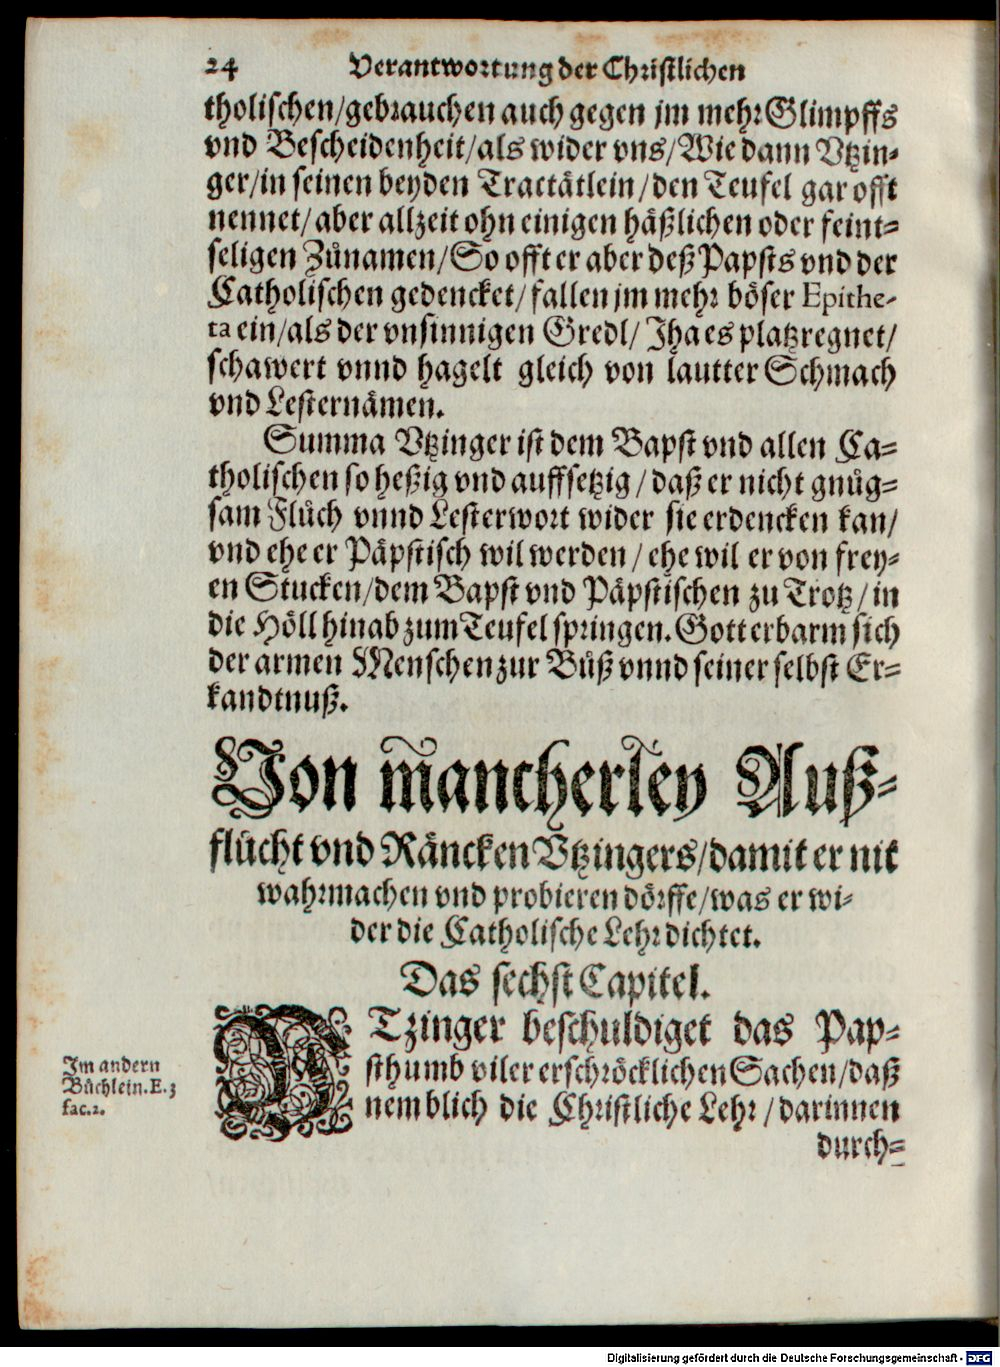 24 Verantwortung der Christlichen
tholischen/gebrauchen auch gegen jm mehr Glimpffs
vnd Bescheidenheit/als wider vns/Wie dann Vtzin-
ger/in seinen beyden Tractätlein/den Teufel gar offt
nennet/aber allzeit ohn einigen häßlichen oder feint-
seligen Zůnamen/So offt er aber deß Papsts vnd der
Catholischen gedencket/fallen jm mehr böser Epithe-
ta ein/als der vnsinnigen Gredl/Jha es platzregnet/
schawert vnnd hagelt gleich von lautter Schmach
vnd Lesternämen.
Summa Vtzinger ist dem Bapst vnd allen Ca-
tholischen so heßig vnd auffsetzig/daß er nicht gnůg-
sam Flůch vnnd Lesterwort wider sie erdencken kan/
vnd ehe er Päpstisch wil werden/ehe wil er von frey-
en Stucken/dem Bapst vnd Päpstischen zu Trotz/in
die Höll hinab zum Teufel springen. Gott erbarm sich
der armen Menschen zur Bůß vnnd seiner selbst Er-
kandtnuß.
Von mancherley Auß-
flücht vnd Räncken Vtzingers/damit er nit
wahrmachen vnd probieren dörffe/was er wi-
der die Catholische Lehr dichtet.
Das sechst Capitel.
VTzinger beschuldiget das Pap-
sthumb viler erschröcklichen Sachen/daß
nemblich die Christliche Lehr/darinnen
durch-
Im andern
Büchlein. E. 3
fac. 2.
Digitalisierung gefördert durch die Deutsche Forschungsgemeinschaft - DFG